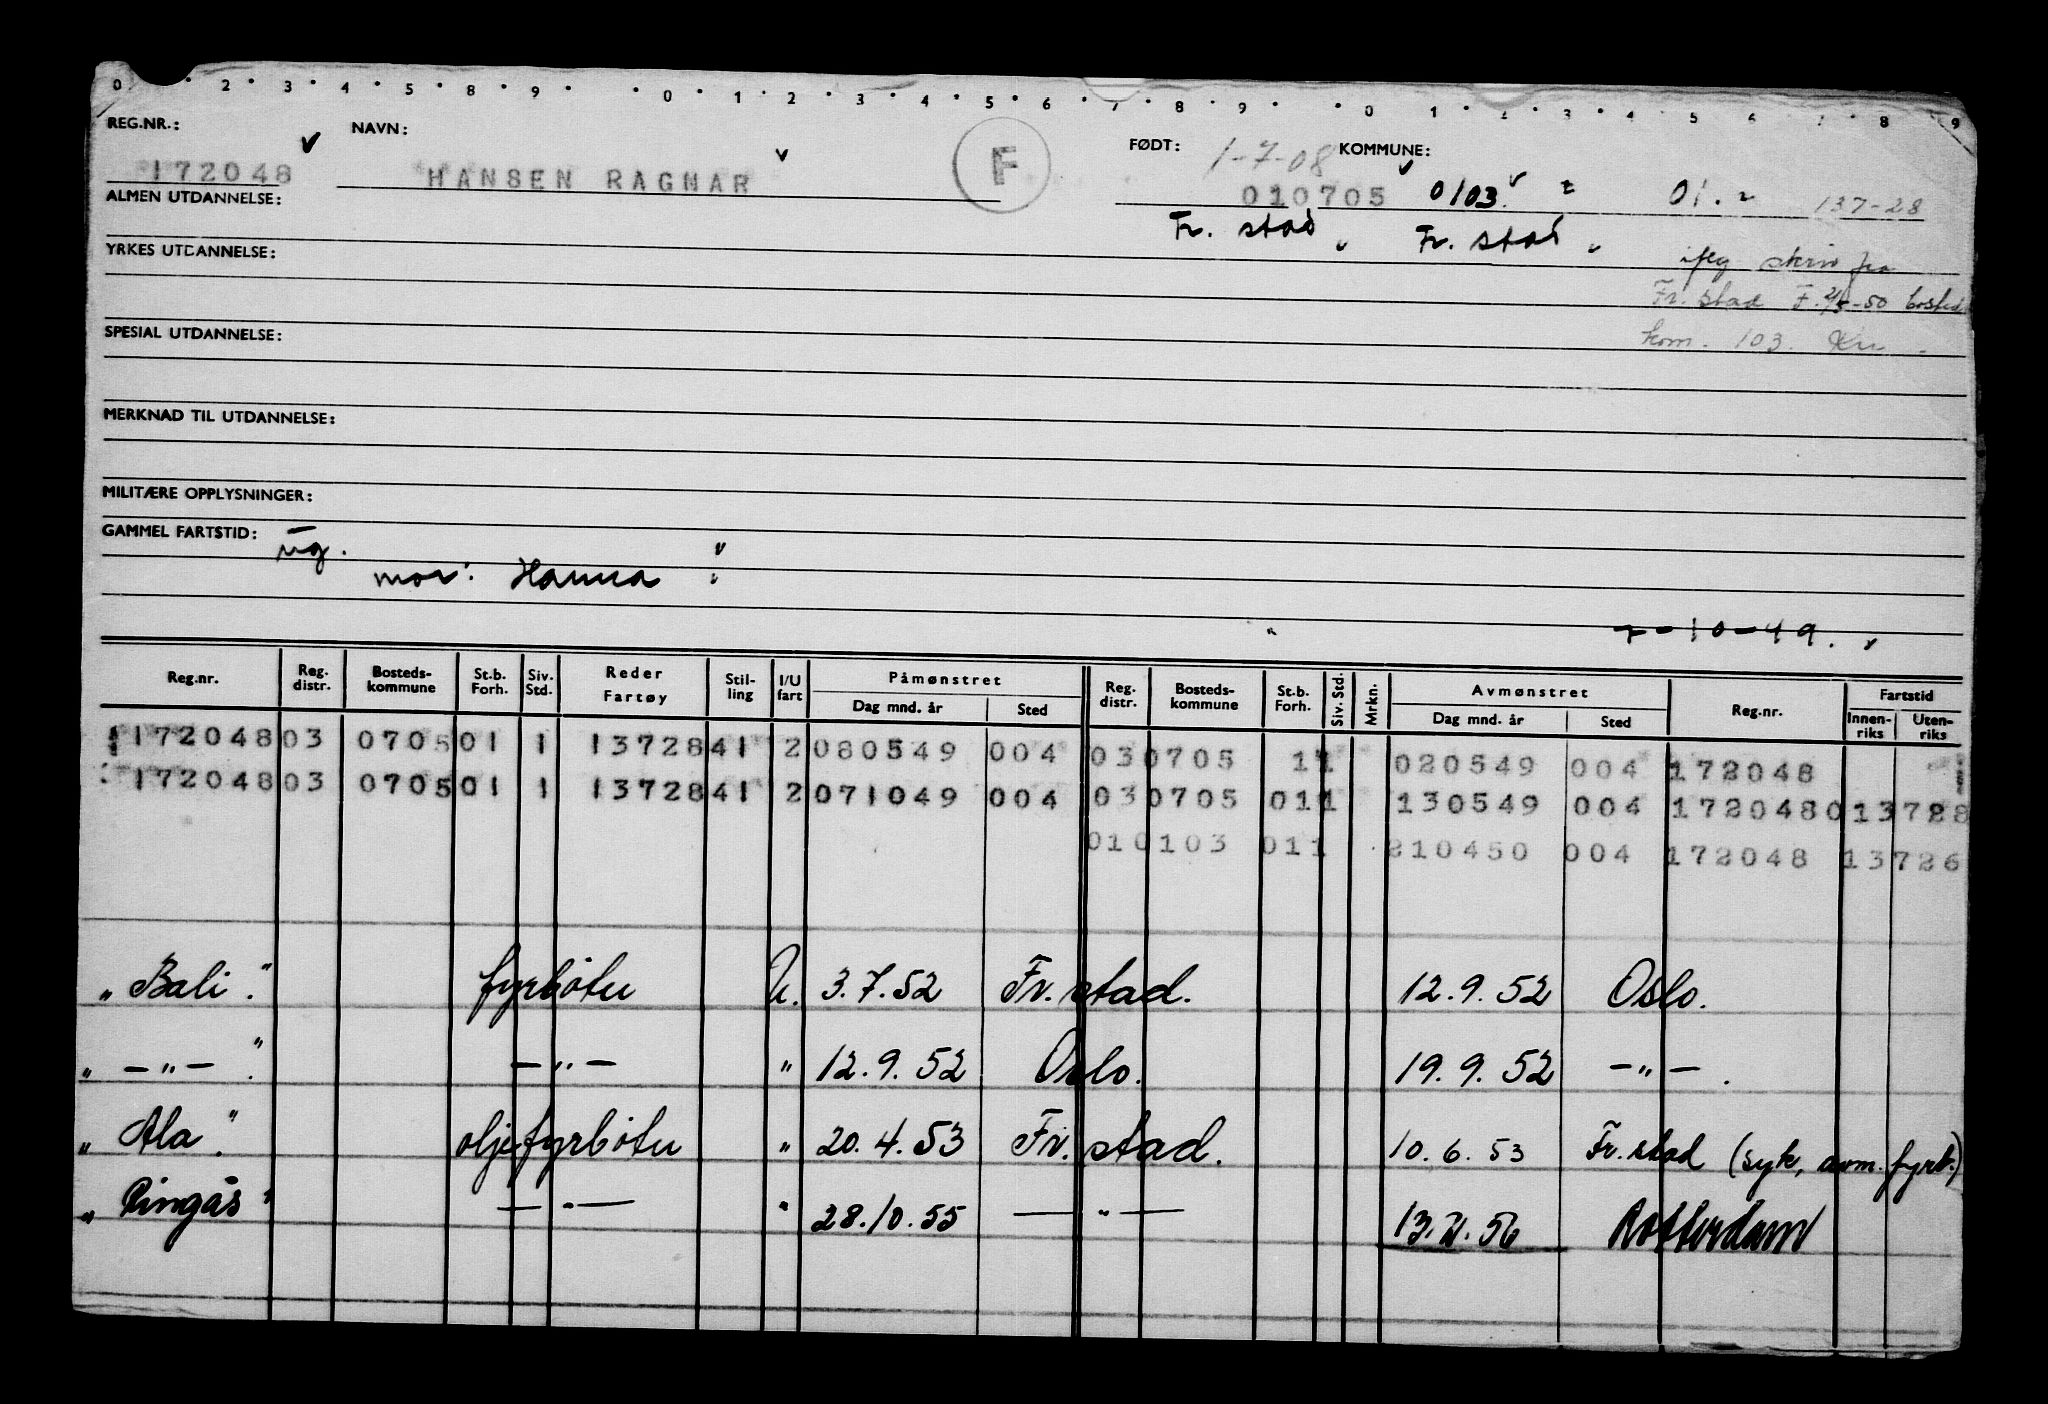 0 · 2 · 3 · 4 · 5 · 8 · 9 · · 0 · 1 · 2 · 3 · 4 · 5 · 6 · 7 · 8 · 9 · · 0 · 1 · 2 · 3 · 4 · 5 6 7 · 8 9
REG.NR.: NAVN: F FØDT: 1-7-08 KOMMUNE:
172048 HANSEN RAGNAR 010705 0103 01. 137-28
ALMEN UTDANNELSE: Fr. stad Fr. stad
YRKES UTDANNELSE: iflg skriv fra
Fr. stad F. -50 bosted
SPESIAL UTDANNELSE: kom. 103.
MERKNAD TIL UTDANNELSE:
MILITÆRE OPPLYSNINGER:
GAMMEL FARTSTID: ug.
mor: Hanna
7-10-49.
Reg.nr. Reg. distr. Bosteds-kommune St.b. Forh. Siv. Std. Reder Fartøy Stil-ling I/U fart Påmønstret Dag mnd. år Sted Reg. distr. Bosteds-kommune St.b. Forh. Siv. Std. Mrkn. Avmønstret Dag mnd. år Sted Reg.nr. Fartstid Innen-riks Uten-riks
172048 03 0705 01 1 13728 41 2 080549 004 03 0705 1 1 020549 004 172048
172048 03 0705 01 1 13728 41 2 071049 004 03 0705 01 1 130549 004 172048 0 13728
01 0103 01 1 210450 004 172048 13726
„ Bali ." fyrbøter U. 3.7.52 Fr. stad. 12.9.52 Oslo.
„ — " — ." — " — " 12.9.52 Oslo. 19.9.52 — " — .
„ Ala ." oljefyrbøter " 20.4.53 Fr. stad. 10.6.53 Fr. stad (syk, avm. fyrb.)
„ Ringås " — " — " 28.10.55 — " — 13. 56 Rotterdam